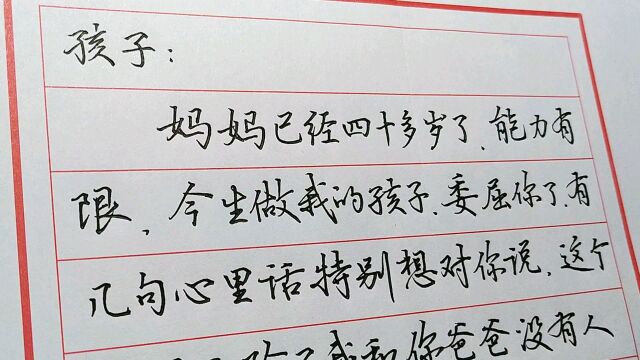 孩子：
妈妈已经四十多岁了，能力有
限，今生做我的孩子，委屈你了，有
几句心里话特别想对你说，这个
除了我和你爸爸没有人